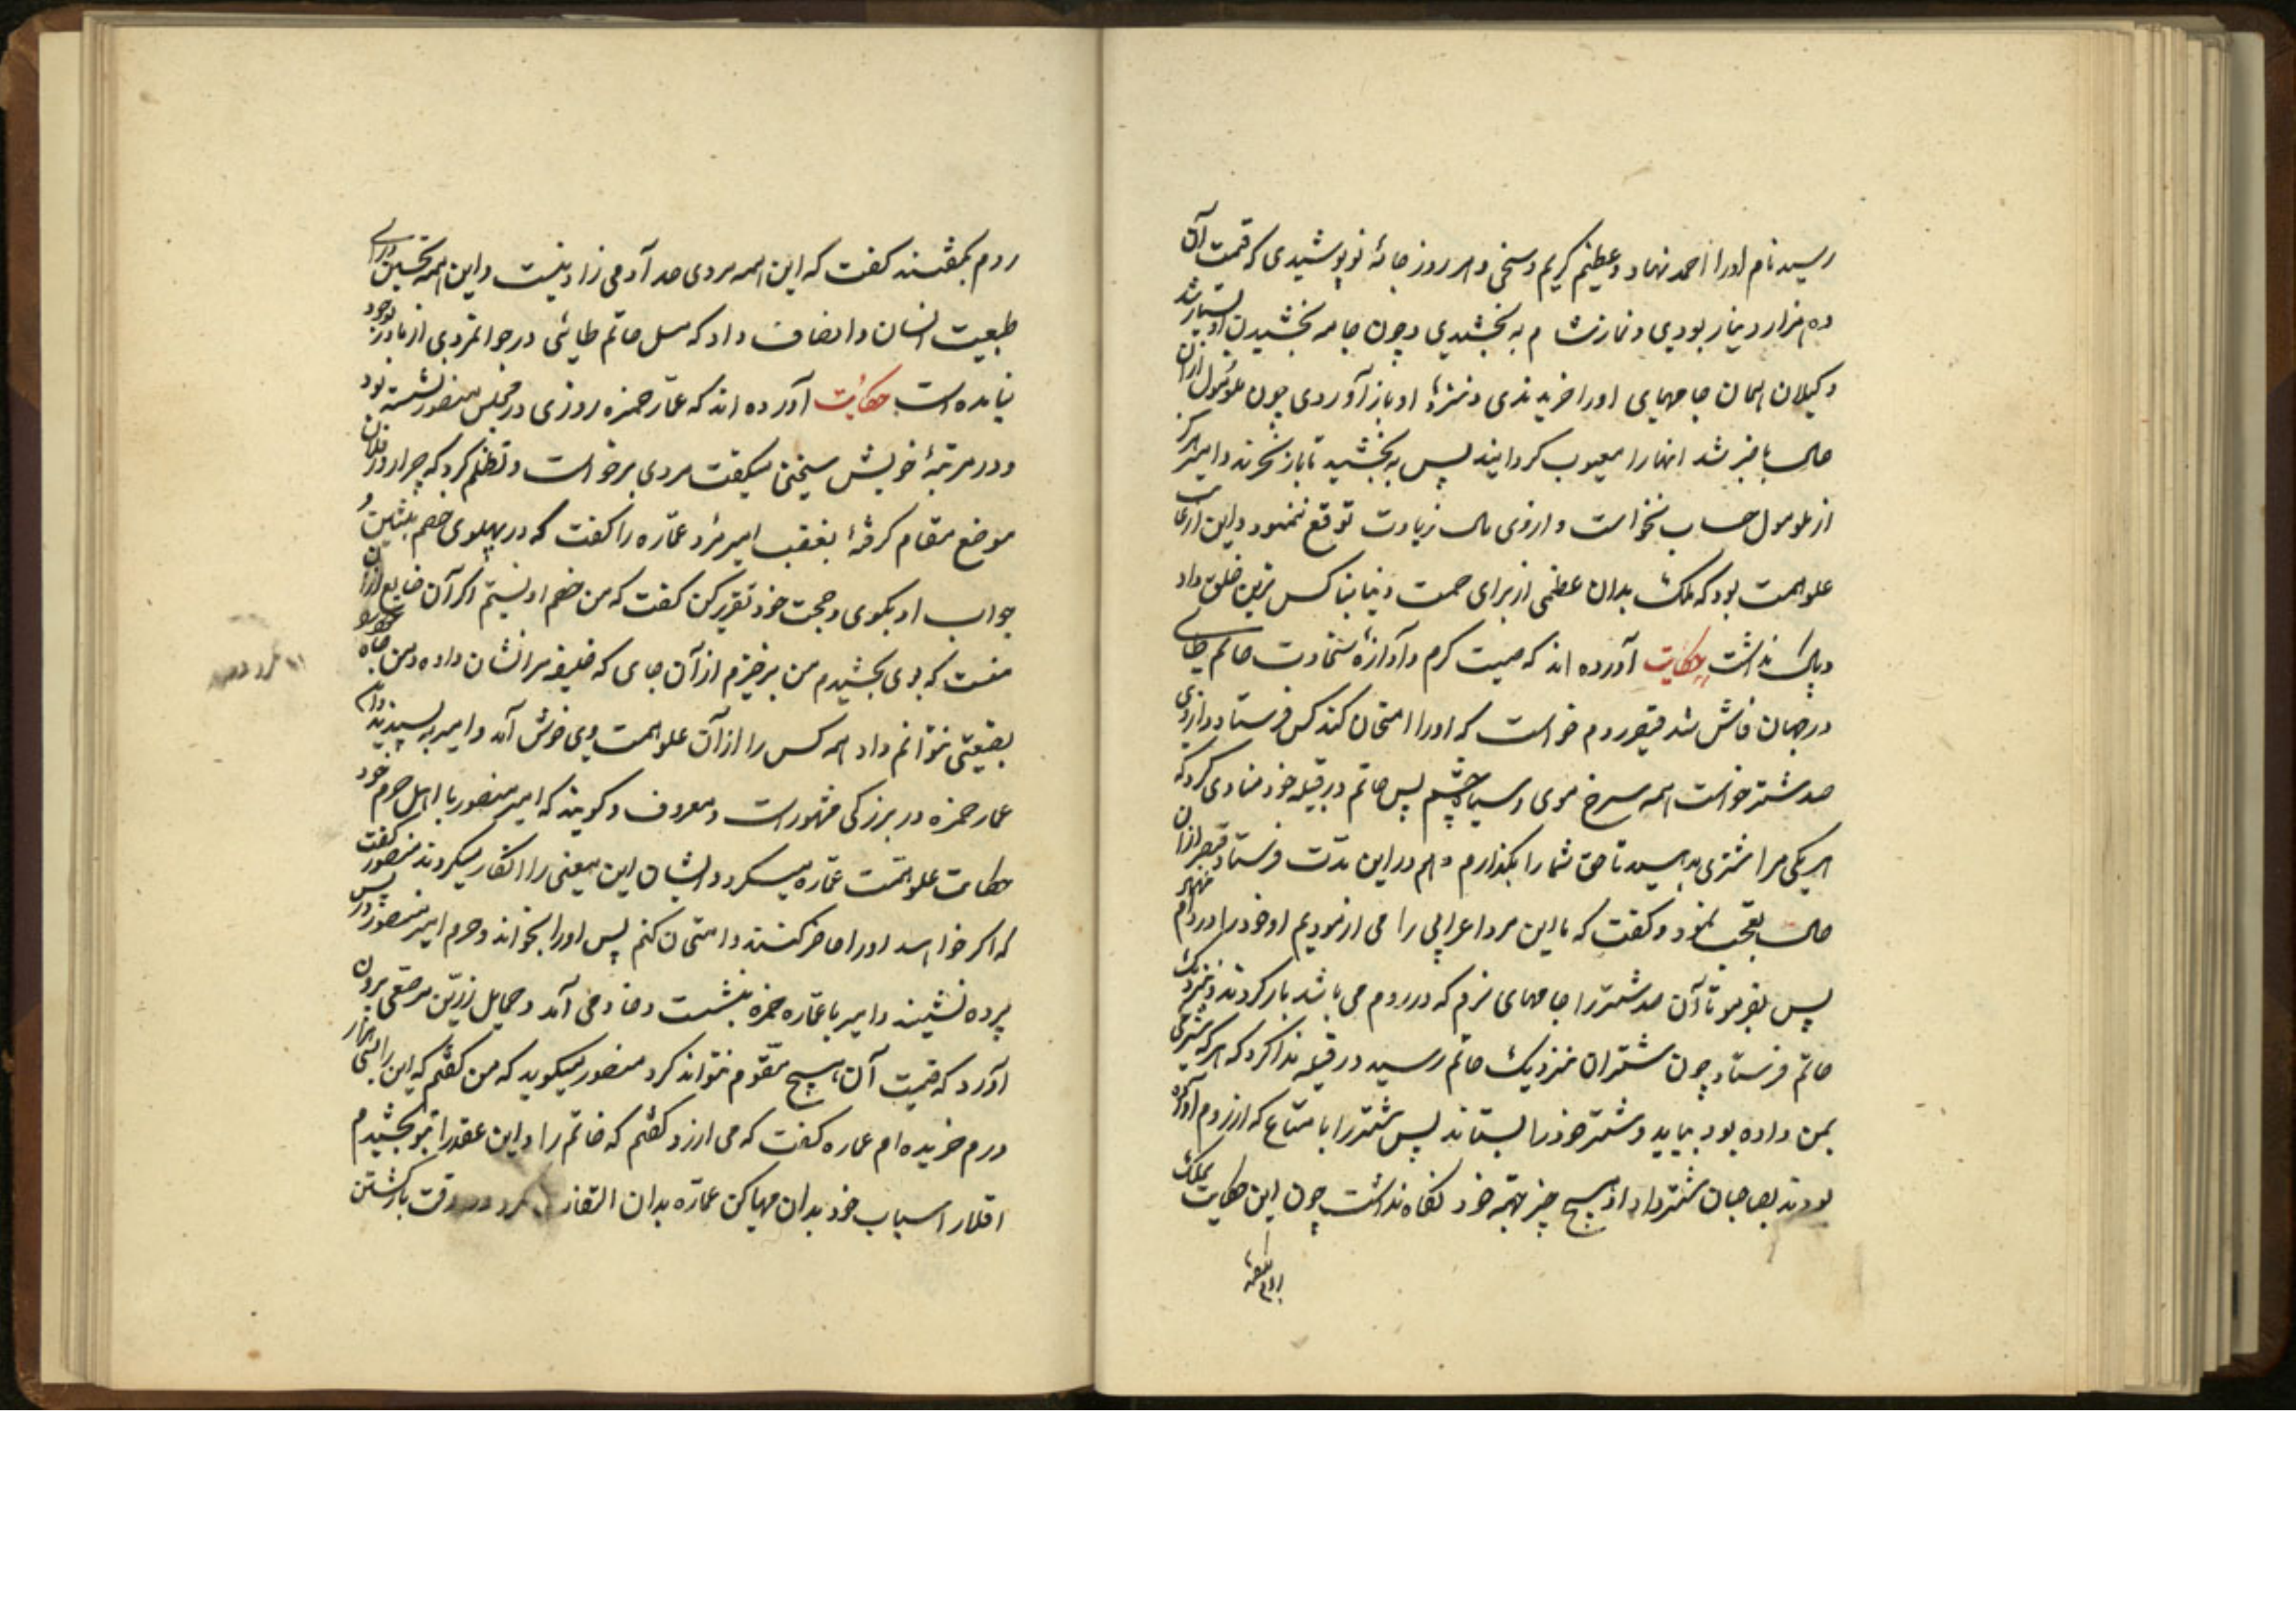 رسید نام اورا احمد نهاد و عظیم کریم و سخی و هر روز جامهٔ نو پوشیدی که قیمت آن
ده هزار دینار بودی و نماز شام به بخشیدی و چون جامه بخشیدن او بسیار شد
وکیلان ایمان جامهای اورا خریدندی و نزد او باز آوردی چون ازان
حال باخبر شد انها را معیوب کردانید پس به بخشید تا باز نخرند و امیر هرکز
از حساب نخواست و ازوی مال زیادت توقع ننمود و این از
علو همت بود که ملک بدان عظمی از برای حمت خلق داد
و باک نداشت حکایت آورده اند که صیت کرم و آوازهٔ سخاوت حاتم طایی
در جهان فاش شد قیصر روم خواست که اورا امتحان کند کس فرستاد و ازوی
صد شتر خواست همه سرخ موی و سیاه چشم پس حاتم در قبیله خود منادی کرد که
هر یکی مرا شتری بدهید تا حق شما را بکذارم و هم در این مدت فرستاد قیصر ازان
حال تعجب نمود و کفت که ما این مرد اعرابی را می ازمودیم او خود را در دام
پس بفرمود تا آن صد شتر را جامهای نرم که در روم می باشد بار کردند و نزدیک
حاتم فرستاد چون شتران نزدیک حاتم رسید در قبیله ندا کرد که هر که شتری
بمن داده بود بیاید و شتر خود را بستاند پس شتر را با متاع که از روم آورده
بودند بصاحبان شتر داد و از هیچ چیز بجهة خود نکاه نداشت چون این حکایت بملک
روم کفت این همه مردی حد آدمی زاد نیست و این همه تحسین ورای
طبیعت انسان و انصاف داد که مثل حاتم طایی در جوانمردی از مادر بوجود
نیامده است حکایت آورده اند که عمار حمزه روزی در مجلس منصور نشسته بود
و در مرتبهٔ خویش سخن میکفت مردی برخواست و تظلم کرد که چرا در فلان
موضع مقام کرفته بغضب امیر مر عماره را کفت که در پهلوی خصم بنشین و
جواب او بکوی و حجت خود تقریر کن کفت که من خصم او نیستم اکر آن ضایع ازان
منست که بوی بخشیدم من برخیزم از آن جای که خلیفه مرا نشان داده و من جاه خود را
بضیعتی نتوانم داد همه کس را از آن علو همت وی خوش آمد و امیر به پسندید
عمار حمزه در بزرکی مشهور است و معروف و کویند که امیر منصور با اهل حرم خود
حکایت علو همت عماره میکرد و ایشان این معنی را انکار میکردند منصور کفت
که اکر خواهید اورا حاضر کنند و امتحان کنم پس اورا بخواند و حرم امیر منصور در پس
پرده نشینند و امیر با عماره حمزه بنشست و خادمی آمد و حمایل زرین مرصعی برون
آورد که قیمت آن هیچ مقوم نتواند کرد منصور میکوید که من کفتم که این را بسی هزار
درم خریده ام عماره کفت که می ارزد کفتم که خاتم را و این عقد را بتو بخشیدم
اسباب خود بدان مهیا کن عماره بدان التفات وقت بازکشتن